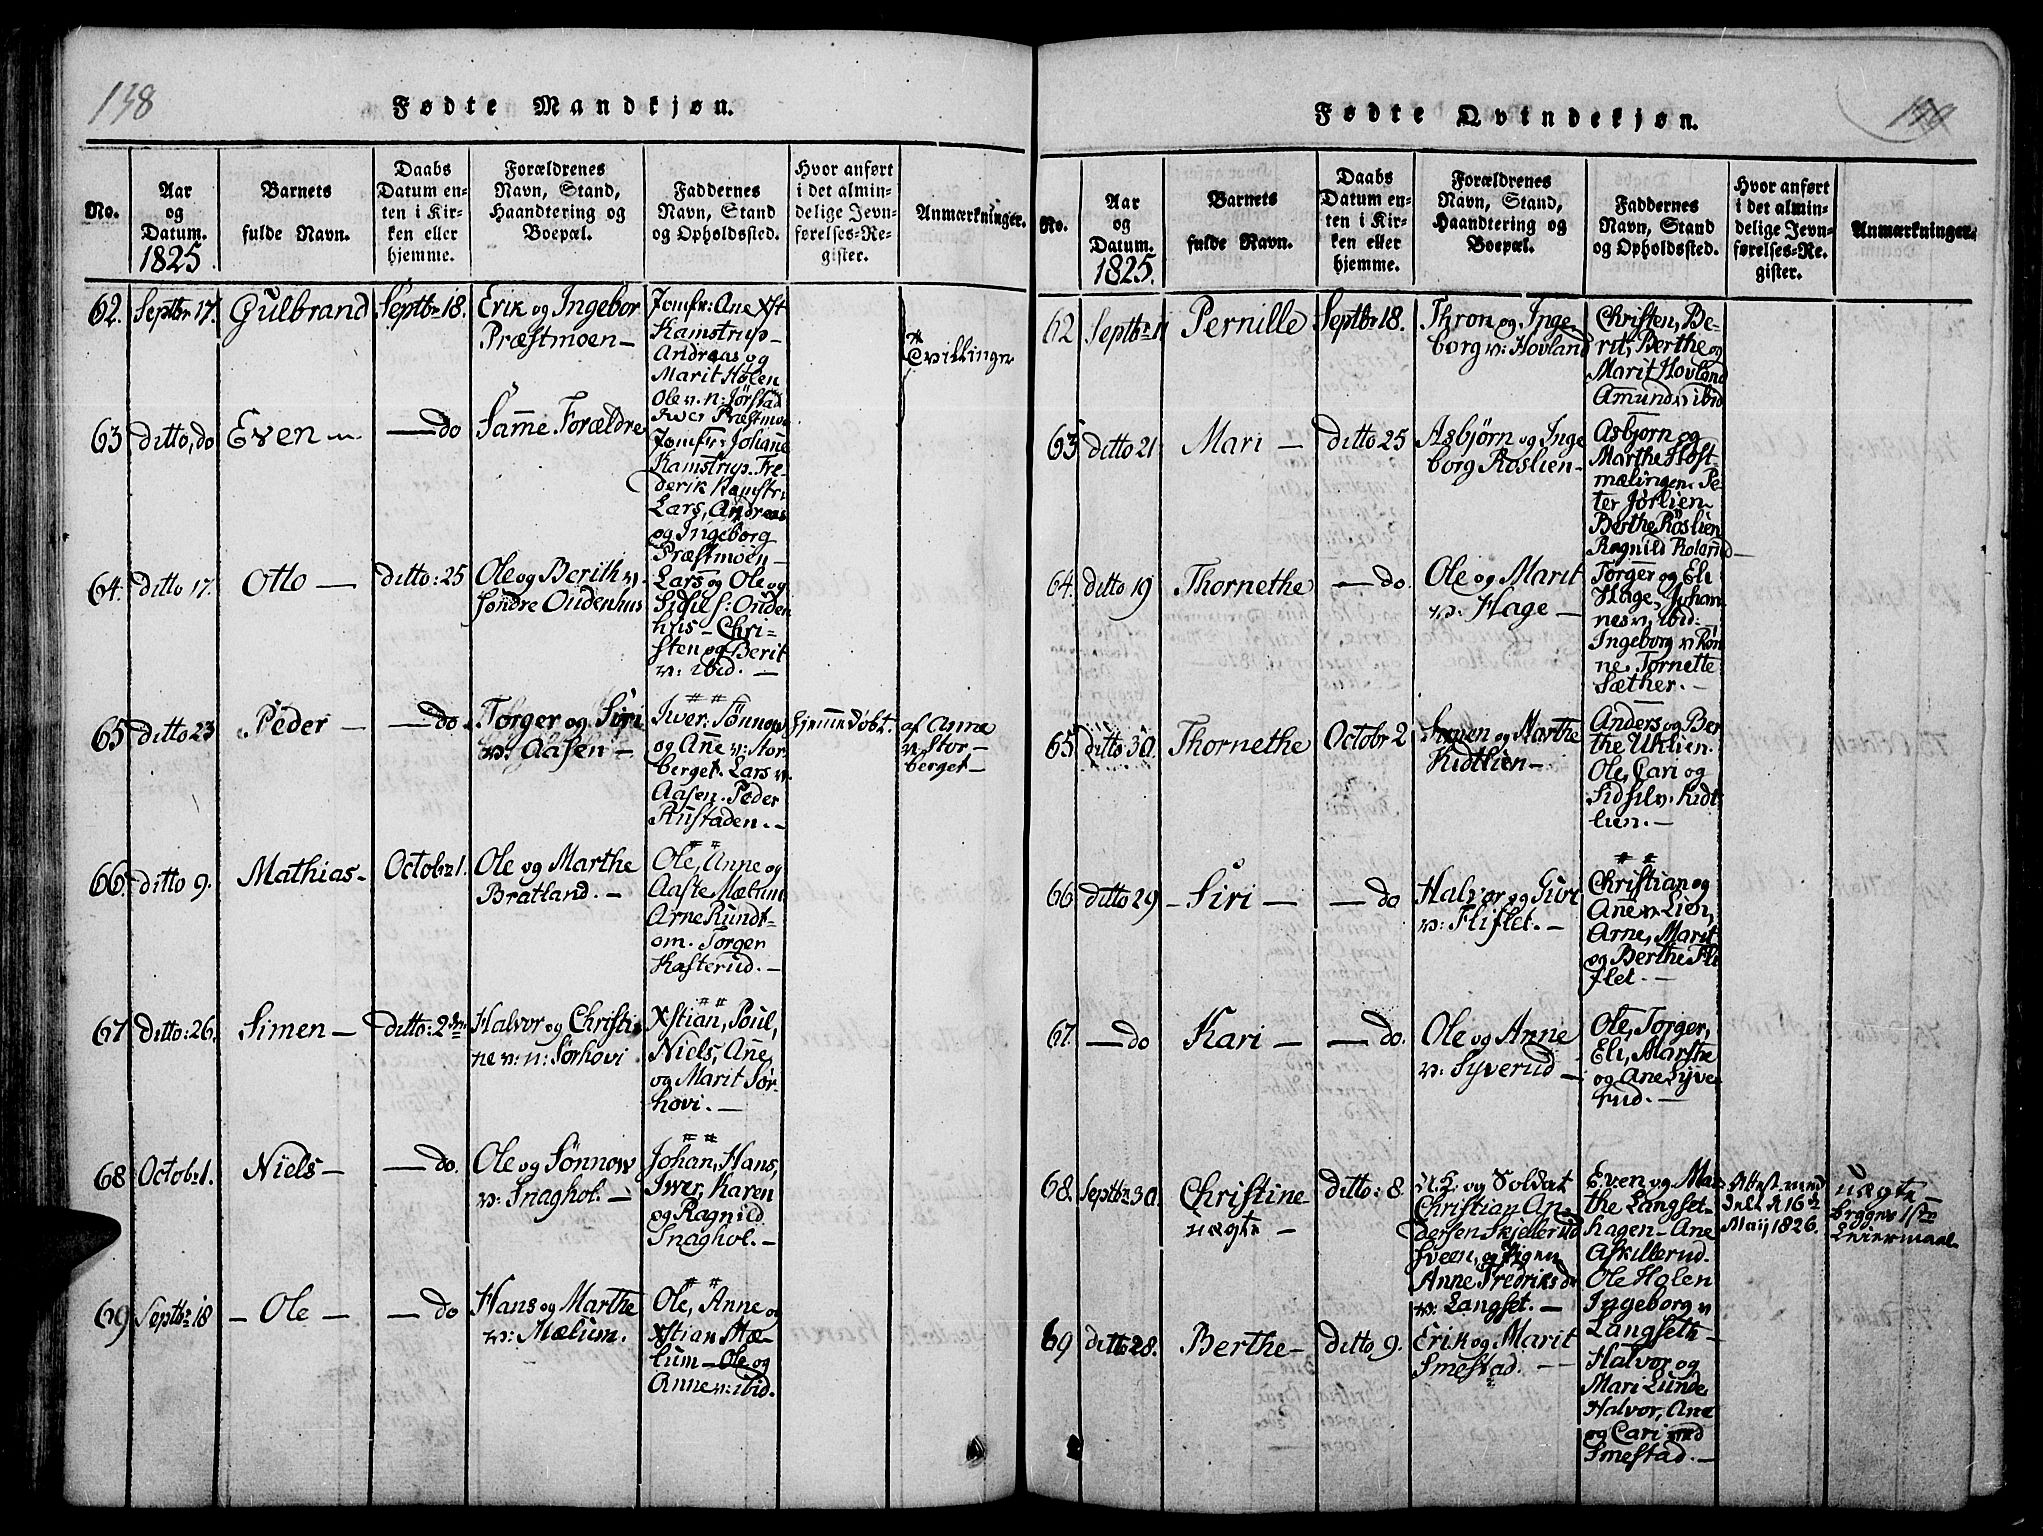 138
Fødte Mandkjøn.
No.
Aar
og
Datum.
1825.
Barnets
fulde Navn.
Daabs
Datum en-
ten i Kir-
ken eller
hjemme.
Forældrenes
Navn, Stand,
Haandtering og
Boepæl.
Faddernes
Navn, Stand
og Opholdssted.
Hvor anført
i det almin-
delige Jevn-
førelses-Re-
gister.
Anmærkninger.
62. Septbr 17. Gulbrand Septbr 18.
Erik og Ingebor
Præstmoen —
Jomfr: Ane Xst
Kamstrup —
Andreas og
Marit Holen
Ole v. n: Jørstad
Iwer Præstmoe
Tvillinger
63 ditto, do Even — do
Samme Forældre
Jomfr: Johane
Kamstrup. Fre-
derik Kamstr:
Lars, Andreas
og Ingeborg
Præstmoen —
64. ditto 17. Otto — ditto: 25
Ole og Berith v.
søndre Oudenhus
Lars og Ole og
Sidsil s: Ouden
hus — Chri-
sten og Berit
v: ibid. —
65 ditto 23 Peder — do.
Torger og Siri
v: Aasen —
Iwer, Sønnow
og Ane v: Stor
berget. Lars v.
Aasen. Peder
Rustaden. —
hjemme Døbt.
af Anne
v: Stor —
berget —
66. ditto 9. Mathias — Octobr 1.
Ole og Marthe
Bratland. —
Ole, Anne og
Aaste Mælum
Arne Rundt-
om. Torger
Kasterud. —
67 ditto: 26. Simen — ditto: 2den
Halvor og Christi
ne v: n: Sørhovi
Xstian, Poul,
Niels, Ane
og Marit Sør
hovi. —
68 Octobr 1. Niels — do.
Ole og Sønnow
v: Snaghol. —
Johan, Hans,
Iwer, Karen
og Ragnild
Snaghol. —
69 Septbr 18 — Ole — do
Hans og Marthe
v: Mælum.
Ole, Anne og
Xstian Mæ-
lum — Ole og
Anne v: ibid.
Fødte Qvindekjøn.
No.
Aar
og
Datum.
1825.
Barnets
fulde Navn.
Daabs
Datum en-
ten i Kir-
ken eller
hjemme.
Forældrenes
Navn, Stand,
Haandtering og
Boepæl.
Faddernes
Navn, Stand
og Opholdssted.
Hvor anført
i det almin-
delige Jevn-
førelses-Re-
gister.
Anmærkninger.
62 Septbr 11 Pernille Septbr 18.
Thron og Inge
borg v: Hovland
Christen, Be-
rit, Berthe og
Marit Hovland
Amund v: ibid
63 ditto 21 Mari — ditto 25
Asbjørn og Inge
borg Roslien —
Asbjørn og
Marthe Flost-
mælingen. Pe-
ter Jørlien —
Berthe Röslien
Ragnild Rolarud —
64. ditto 19 Thornethe — do.
Ole og Marit
v: Hage —
Torger og Eli
Hage, Johan
nes v, ibid:
Ingeborg v Røn
ne, Tornette
Sæther. —
65 ditto 30. Thornethe Octobr 2
Simen og Marthe
Kidtlien —
Anders og Ber
the Uklien.
Ole, Cari og
Sidsil v: Kidt
lien. —
66 ditto 29 — Siri — do
Halvor og Guri
v: Fliflet. —
Christian og
Ane v Lien,
Arne, Marit
og Berthe Fli
flet. —
67 — do Kari — do.
Ole og Anne
v: Syverud —
Ole, Torger,
Eli, Marthe
og Ane Syve
rud. —
68. Septbr 30. Christine — ditto: 8.
uægte —
U. K. og Soldat
Christian An-
dersen Skjellerud
Sveen, og Pigen
Anne Fredriksdr
v: Langset. —
Even og Mar
the Langset-
hagen — Ane
Askillerud.
Ole Holen
Ingeborg v
Langseth —
May 1826.
uægte —
Leiermaal.
69 ditto 28. Berthe — ditto 9.
Erik og Marit
Smestad. —
Halvor og
Mari Lunde
Halvor, Ane
og Cari
Smestad. —